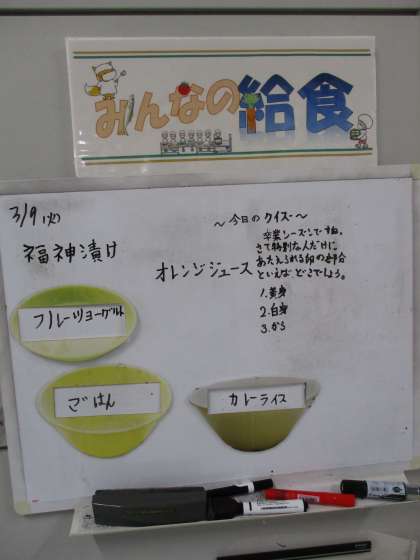 みんなの給食
3/9(火)
福神漬け
オレンジジュース
フルーツヨーグルト
ごはん
カレーライス
〜今日のクイズ〜
卒業シーズンですね。
さて特別な人だけに
あたえられる卵の部分
といえばどこでしょう。
1.黄身
2.白身
3.から